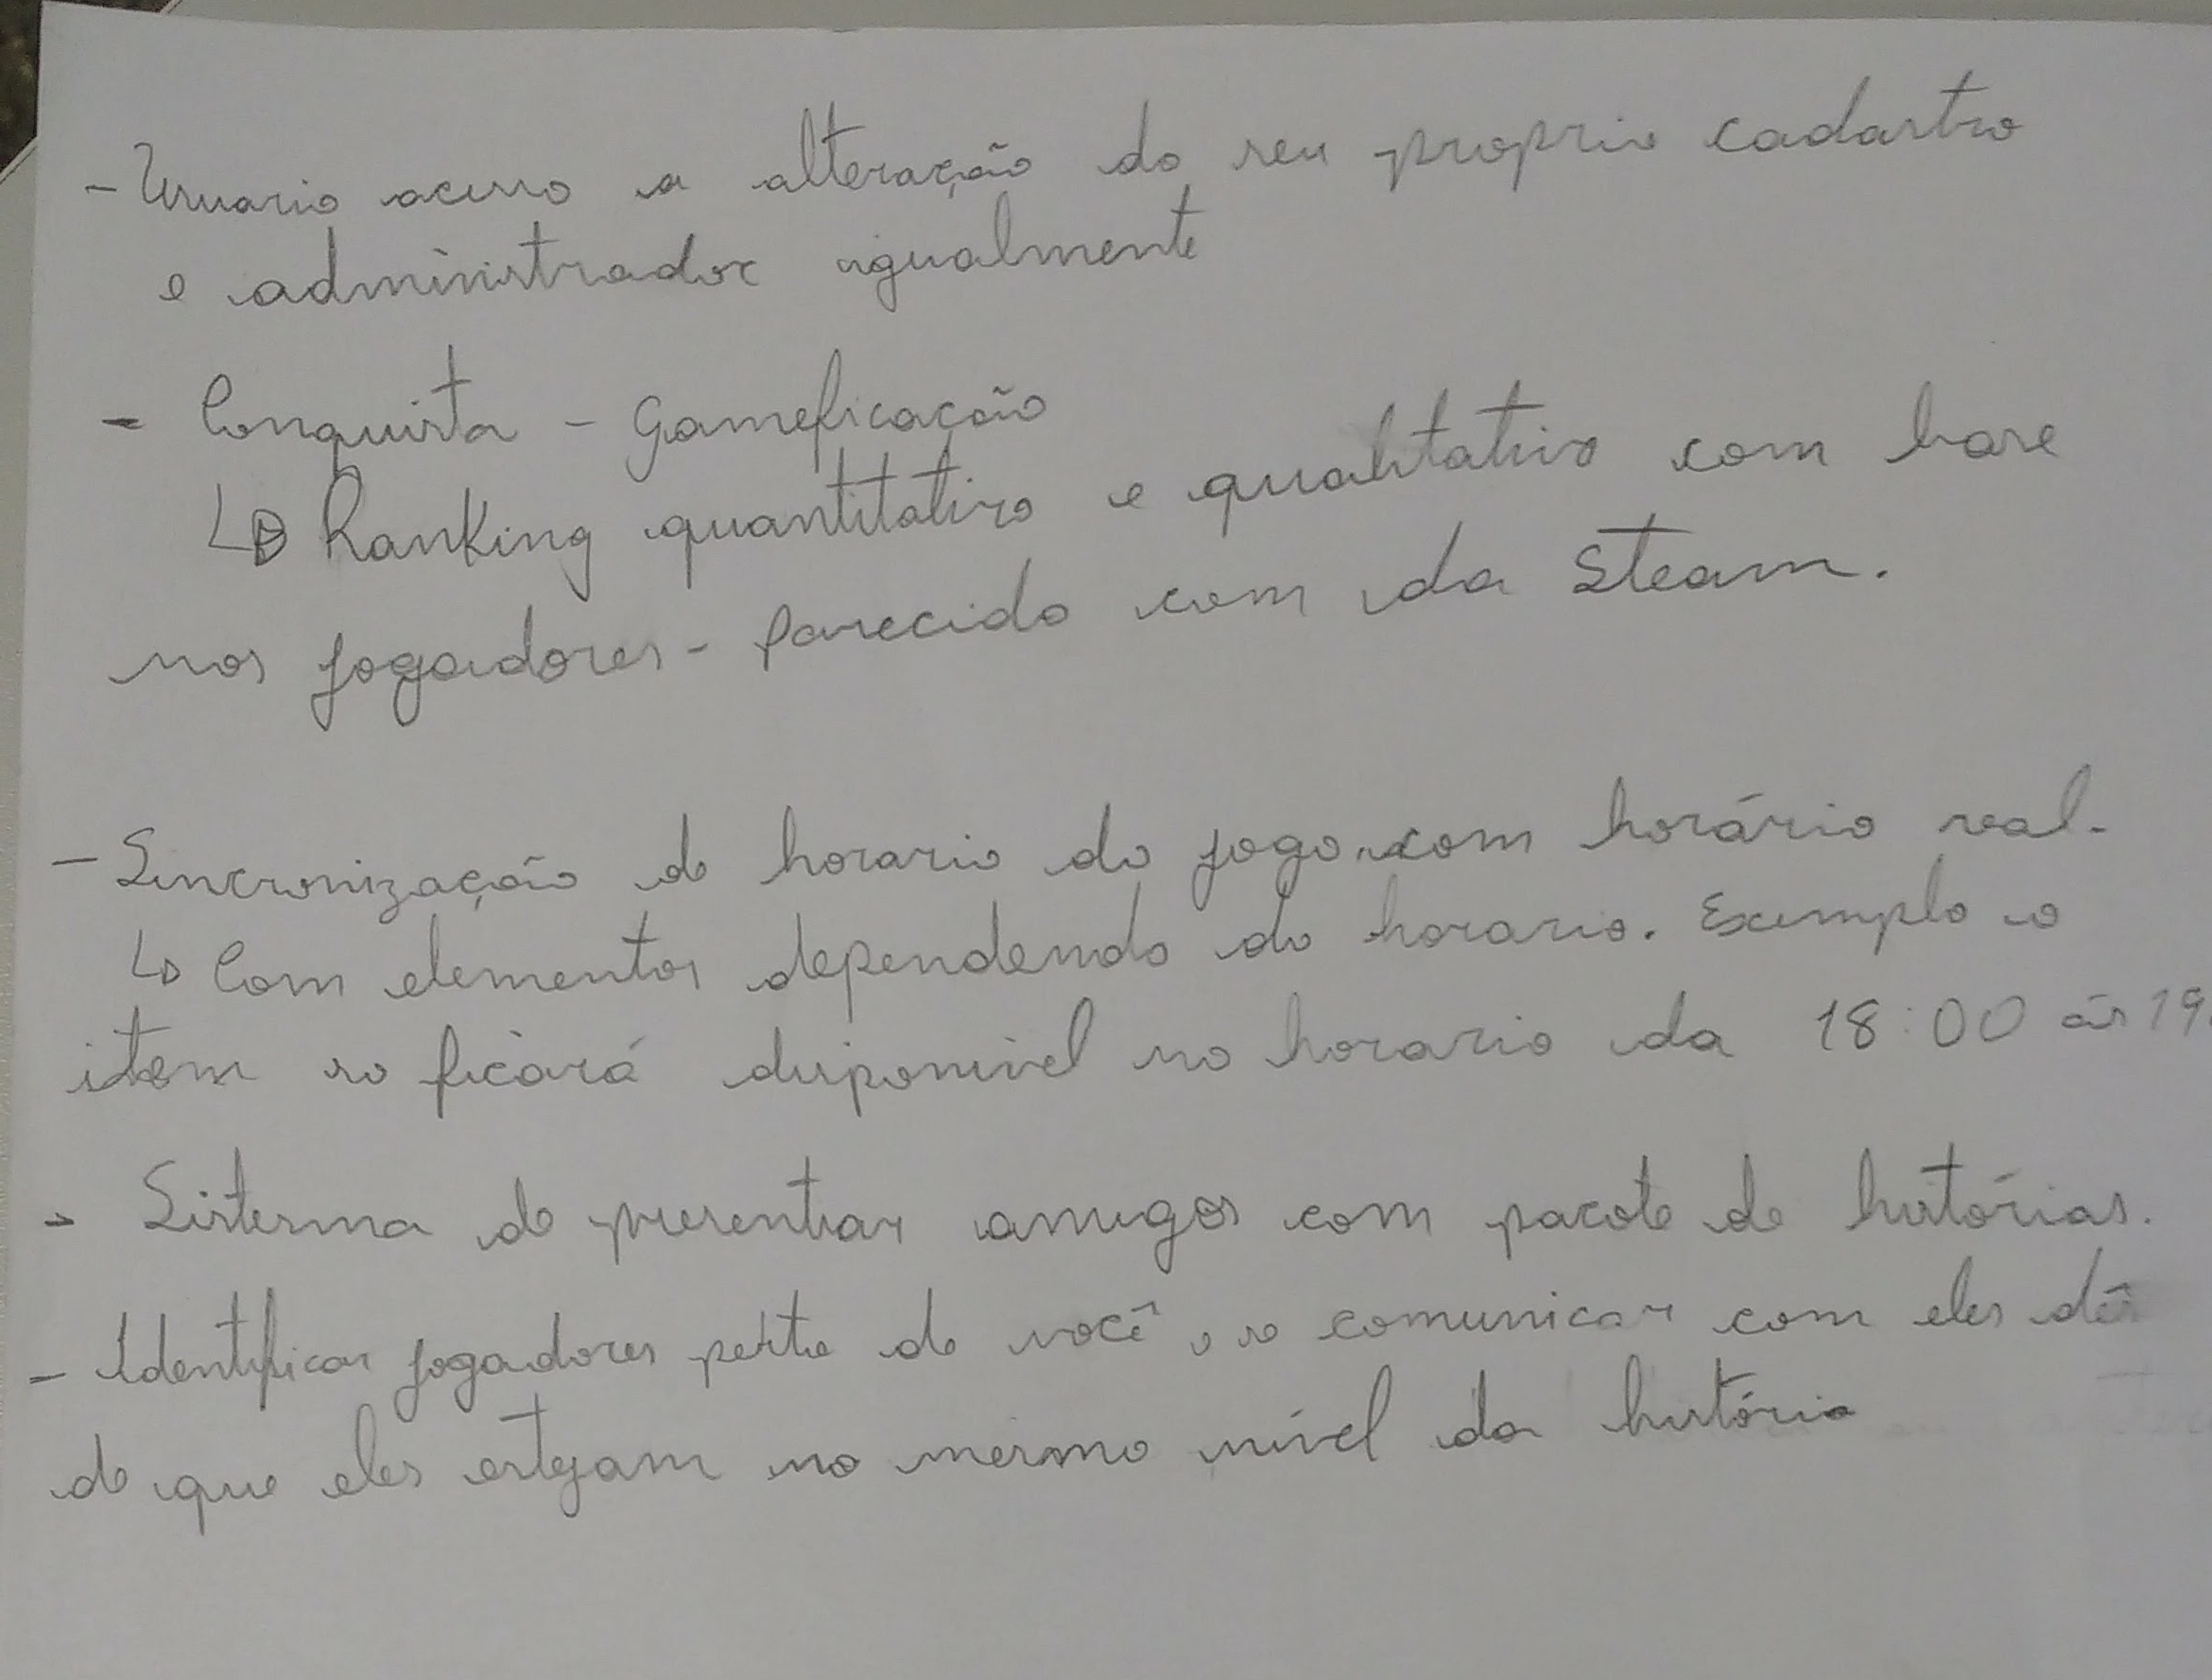 - Usuario acesso a alteração do seu proprio cadastro
e administrador igualmente
- Conquista - Gameficação
↳ Ranking quantitativo e qualitativo com base
nos jogadores - parecido com da Steam.
- Sincronização de horario do jogo com horário real.
↳ Com elementos dependendo do horario. Exemplo o
item so ficará disponivel no horario da 18:00 ás 19
- Sistema de presentiar amigos com pacote de histórias.
- Identificar jogadores perto de você, so comunicar com eles dês
de que eles estejam no mesmo nível da história